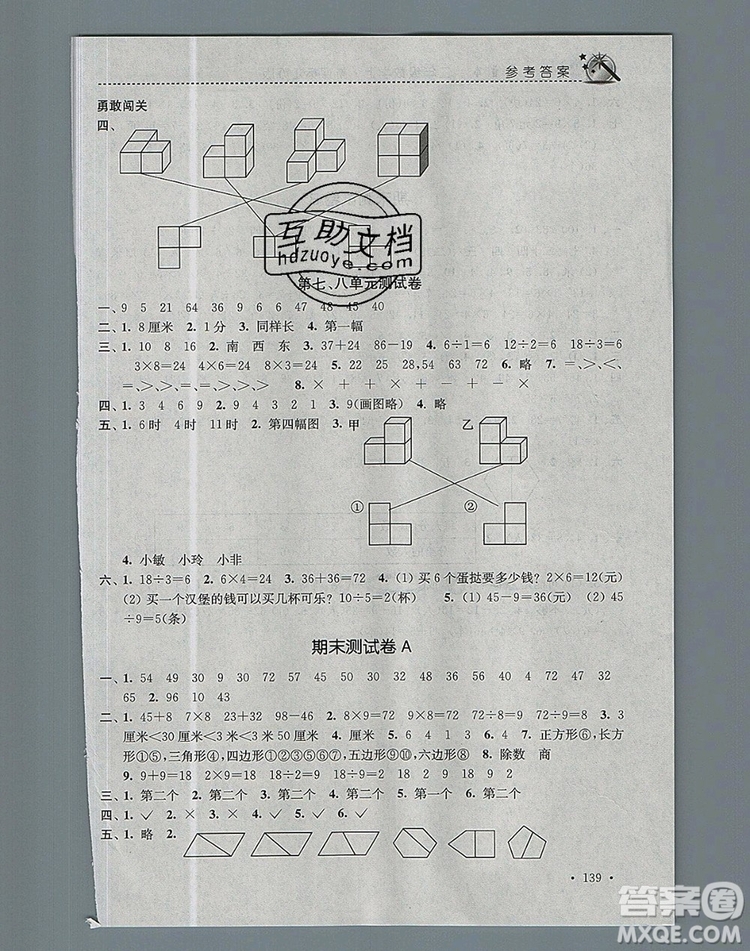 参考答案
勇敢闯关
四、
互助文档
hdzuoye.com
第七、八单元测试卷
一、9 5 21 64 36 9 6 6 47 48 45 40
二、1. 8厘米 2. 1分 3. 同样长 4. 第一幅
三、1. 10 8 16 2. 南 西 东 3. 37+24 86-40 6÷1=6 18÷3=6
3×8=24 4×6=24 5. 22 25 28,54 63 72 6. 略 7. =、>、<、
=、>、>、=、>、= 8. × + ÷ + + - ×
四、1. 3 4 6 9 2. 9 4 3 2 1 3. 9(画图略) 4. 略
五、1. 6时 4时 11时 2. 第四幅图 3. 甲 乙
① ②
4. 小敏 小玲 小非
六、1. 18÷3=6 2. 6×4=24 3. 36+36=72 4. (1) 买6个蛋挞要多少钱? 2×6=12(元)
(2) 买一个汉堡的钱可以买几杯可乐? 10÷5=2(杯) 5. (1) 45-9=36(元) (2) 45
÷9=5(条)
期末测试卷 A
一、1. 54 49 30 9 30 72 4 9 71 1 64 72 47 32
65 2. 96 10 43
二、1. 45+8 7×8 23+32 98-46 2. 8×9=72 9×8=72 72÷8=9 72÷9=8 3. 3
厘米<30厘米<3米<3米50厘米 4. 9 8 4 5 5. 6 4 1 3 6. < > = < 7. 正方形⑥,长方
形①⑤,三角形④⑦,四边形①②⑤⑥,五边形③,六边形⑧ 8. 除数 商
9. 9+9=18 2×9=18 18÷2=9 18÷9=2 18 2 9 9 2
三、1. 第二个 2. 第二个 3. 第二个 4. 第二个
四、1. ✓ 2. × 3. × 4. ✓ 5. ✓ 6. ✓
五、1. 略 2.
• 139 •
答案圈
MXQE.COM